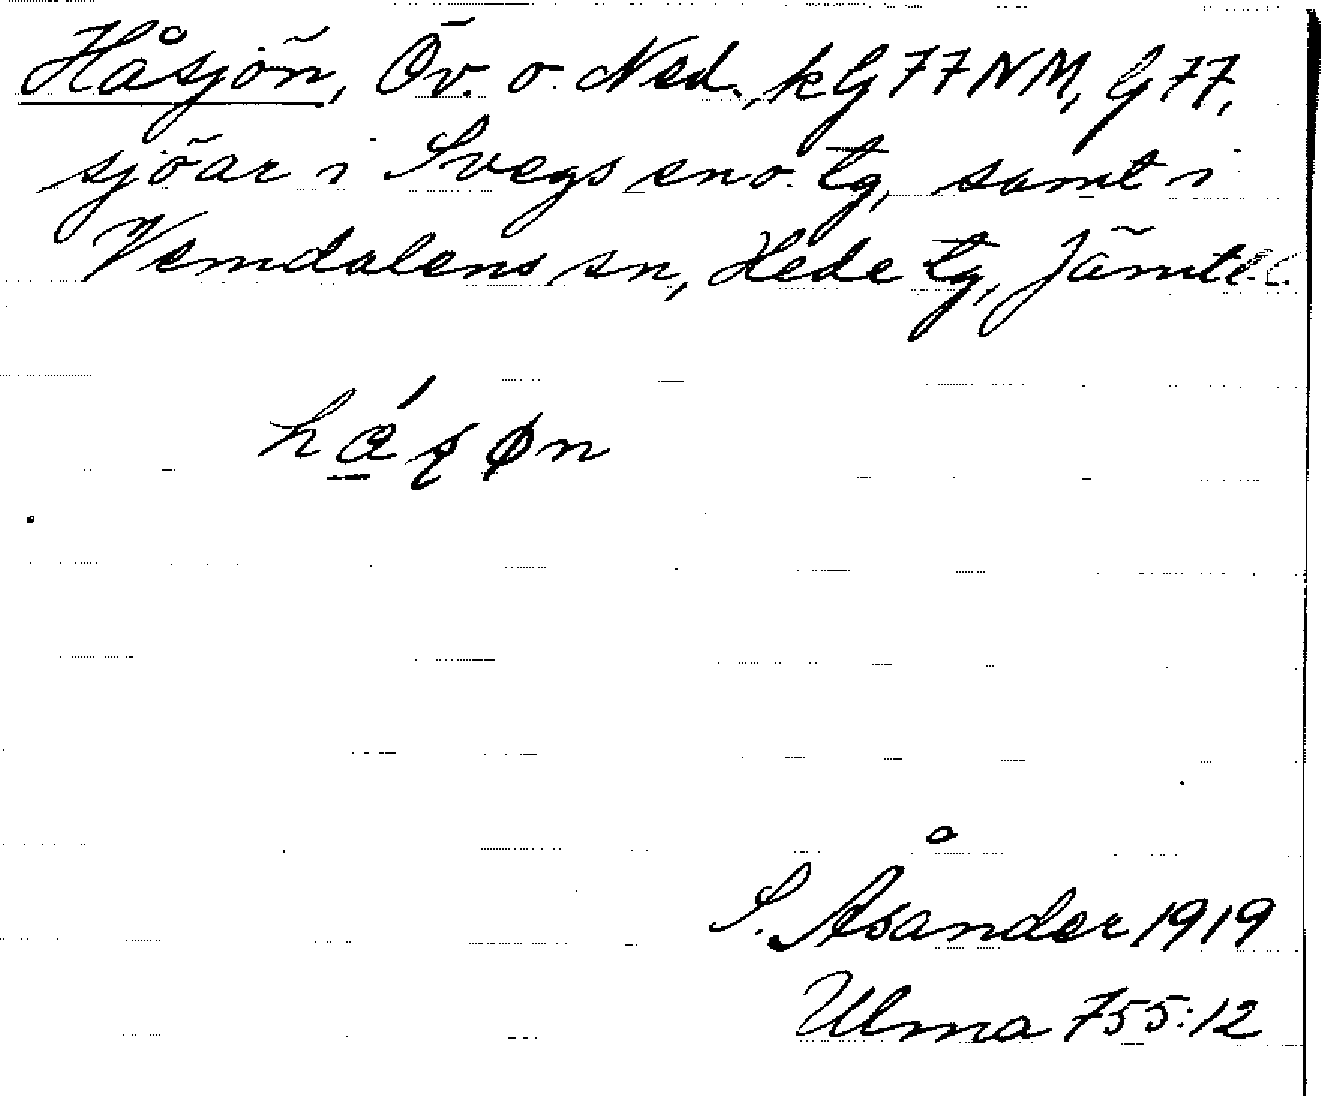 Håsjön, Öv. o. Ned., kG77NM, G77,
sjöar i Svegs sno. tg, samt i
Vemdalens sn, Hede tg, Jämtl.
S. Åsander 1919
Ulma 755:12